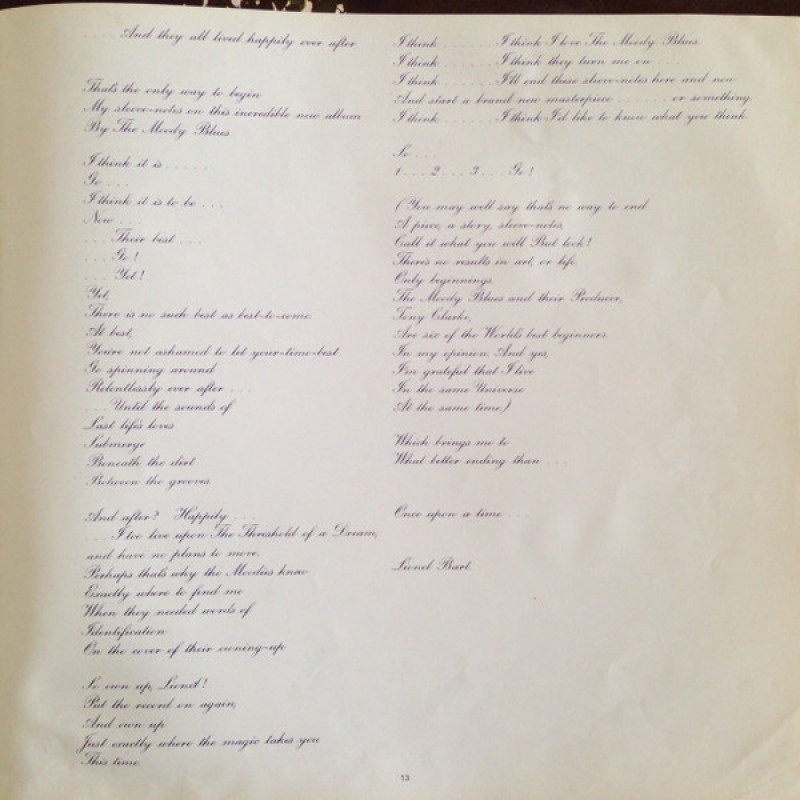 . . . . And they all lived happily ever after
That's the only way to begin
My sleeve-notes on this incredible new album
By The Moody Blues
I think it is . . . . .
Go . . .
I think it is to be . . .
Now . . .
. . . Their best . . .
. . . Go!
. . . Yet!
Yet,
There is no such best as best-to-come.
At best,
You're not ashamed to let your-time-best
Go spinning around
Relentlessly ever after . . .
. . . Until the sounds of
Last life's loves
Submerge
Beneath the dirt
Between the grooves.
And after? Happily . . .
. . . I too live upon The Threshold of a Dream,
and have no plans to move.
Perhaps that's why the Moodies knew
Exactly where to find me
When they needed words of
Identification
On the cover of their owning-up
So own up, Lionel!
Put the record on again,
And own up
Just exactly where the magic takes you
This time.
I think . . . . . . . I think I love The Moody Blues.
I think . . . . . . . I think they turn me on . . .
I think . . . . . . . I'll end these sleeve-notes here and now
And start a brand new masterpiece . . . . . . . or something.
I think . . . . . . . I think I'd like to know what you think.
So . . .
1 . . . 2 . . . 3 . . . Go!
(You may well say that's no way to end
A piece, a story, sleeve-notes,
Call it what you will. But look!
There's no results in art, or life.
Only beginnings.
The Moody Blues and their Producer,
Tony Clarke,
Are six of the World's best beginners.
In my opinion. And yes,
I'm grateful that I live
In the same Universe
At the same time.)
Which brings me to
What better ending than . . .
Once upon a time . . .
Lionel Bart.
13